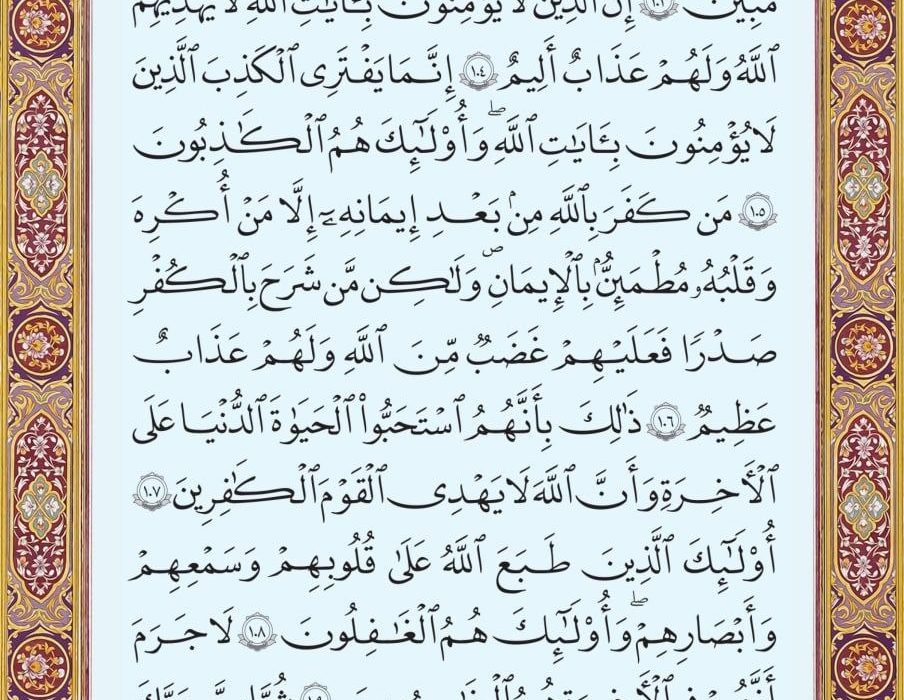 مُّبِينٌ ١٠٣ إِنَّ ٱلَّذِينَ لَا يُؤْمِنُونَ بِـَٔايَٰتِ ٱللَّهِ لَا يَهْدِيهِمُ
ٱللَّهُ وَلَهُمْ عَذَابٌ أَلِيمٌ ١٠٤ إِنَّمَا يَفْتَرِى ٱلْكَذِبَ ٱلَّذِينَ
لَا يُؤْمِنُونَ بِـَٔايَٰتِ ٱللَّهِۖ وَأُو۟لَٰٓئِكَ هُمُ ٱلْكَٰذِبُونَ
١٠٥ مَن كَفَرَ بِٱللَّهِ مِنۢ بَعْدِ إِيمَٰنِهِۦٓ إِلَّا مَنْ أُكْرِهَ
وَقَلْبُهُۥ مُطْمَئِنٌّۢ بِٱلْإِيمَٰنِ وَلَٰكِن مَّن شَرَحَ بِٱلْكُفْرِ
صَدْرًا فَعَلَيْهِمْ غَضَبٌ مِّنَ ٱللَّهِ وَلَهُمْ عَذَابٌ
عَظِيمٌ ١٠٦ ذَٰلِكَ بِأَنَّهُمُ ٱسْتَحَبُّوا۟ ٱلْحَيَوٰةَ ٱلدُّنْيَا عَلَى
ٱلْأَخِرَةِ وَأَنَّ ٱللَّهَ لَا يَهْدِى ٱلْقَوْمَ ٱلْكَٰفِرِينَ ١٠٧
أُو۟لَٰٓئِكَ ٱلَّذِينَ طَبَعَ ٱللَّهُ عَلَىٰ قُلُوبِهِمْ وَسَمْعِهِمْ
وَأَبْصَٰرِهِمْۖ وَأُو۟لَٰٓئِكَ هُمُ ٱلْغَٰفِلُونَ ١٠٨ لَا جَرَمَ